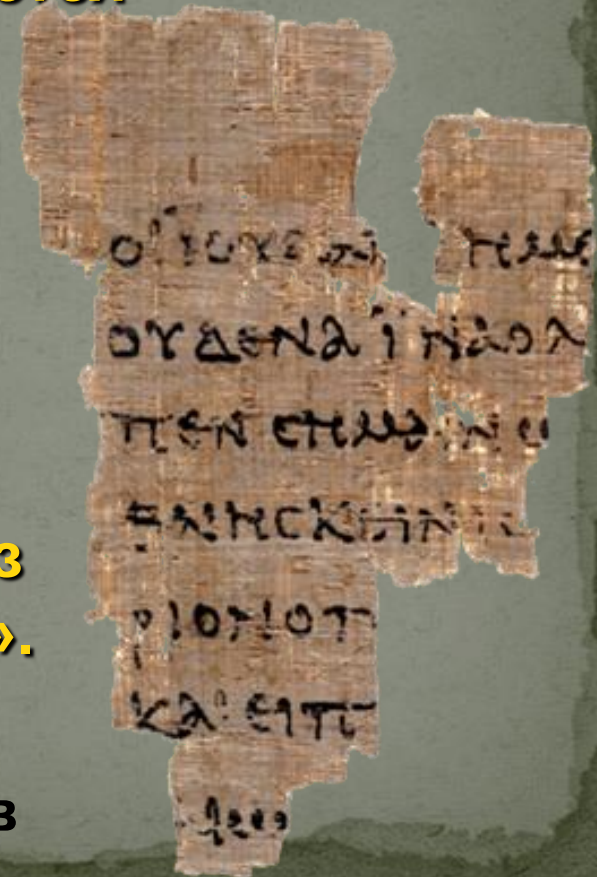 ΟΙ ΙΟΥΔΑΙ ΗΜΕ
ΟΥΔΕΝΑ ΪΝΑ Ο Λ
ΠΕΝ CΗΜΑΙΝΩ
ΘΝΗCΚΕΙΝ ΙC
з
ΡΙΟΝ Ο Π
».
ΚΑΙ ΕΙΠ
в